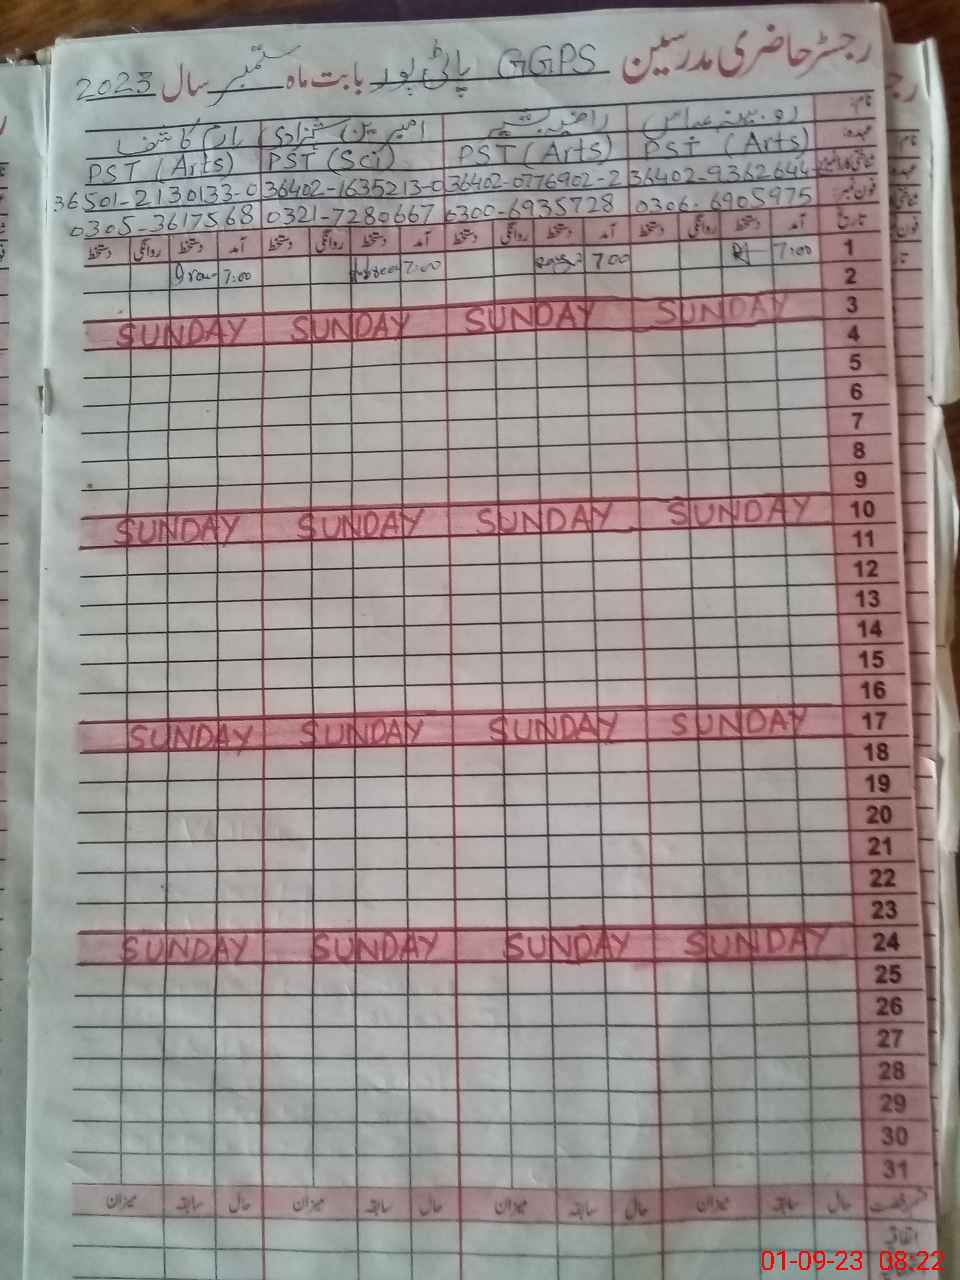 رجسٹر حاضری مدرسین GGPS پائی پور بابت ماہ ستمبر سال 2023
نام:
عہدہ: PST (Arts) PST (Arts) PST (Sci) PST (Arts)
36402-9362644 36402-0776902-2 36402-1635213-0 36501-2130133-0
فون نمبر 0306-6905975 0300-6935728 0321-7280667 0305-3617568
تاریخ آمد دستخط روانگی دستخط آمد دستخط روانگی دستخط آمد دستخط روانگی دستخط آمد دستخط روانگی دستخط
1 7:00 700 7:00 7:00
2
3 SUNDAY SUNDAY SUNDAY SUNDAY
4
5
6
7
8
9
10 SUNDAY SUNDAY SUNDAY SUNDAY
11
12
13
14
15
16
17 SUNDAY SUNDAY SUNDAY SUNDAY
18
19
20
21
22
23
24 SUNDAY SUNDAY SUNDAY SUNDAY
25
26
27
28
29
30
31
حال سابقہ میزان حال سابقہ میزان حال سابقہ میزان حال سابقہ میزان
اتفاقیہ
01-09-23 08:22